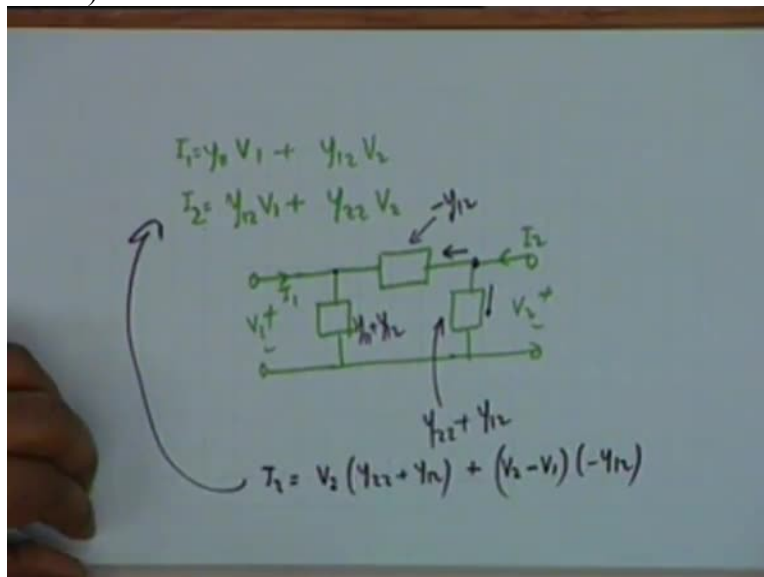 I₁=y₁₁ V₁ + y₁₂ V₂
I₂= y₁₂V₁ + y₂₂ V₂
-y₁₂
I₂
I₁
V₁ + -
y₁₁+y₁₂
V₂ + -
y₂₂+ y₁₂
I₂ = V₂ (y₂₂ + y₁₂) + (V₂ - V₁) (-y₁₂)